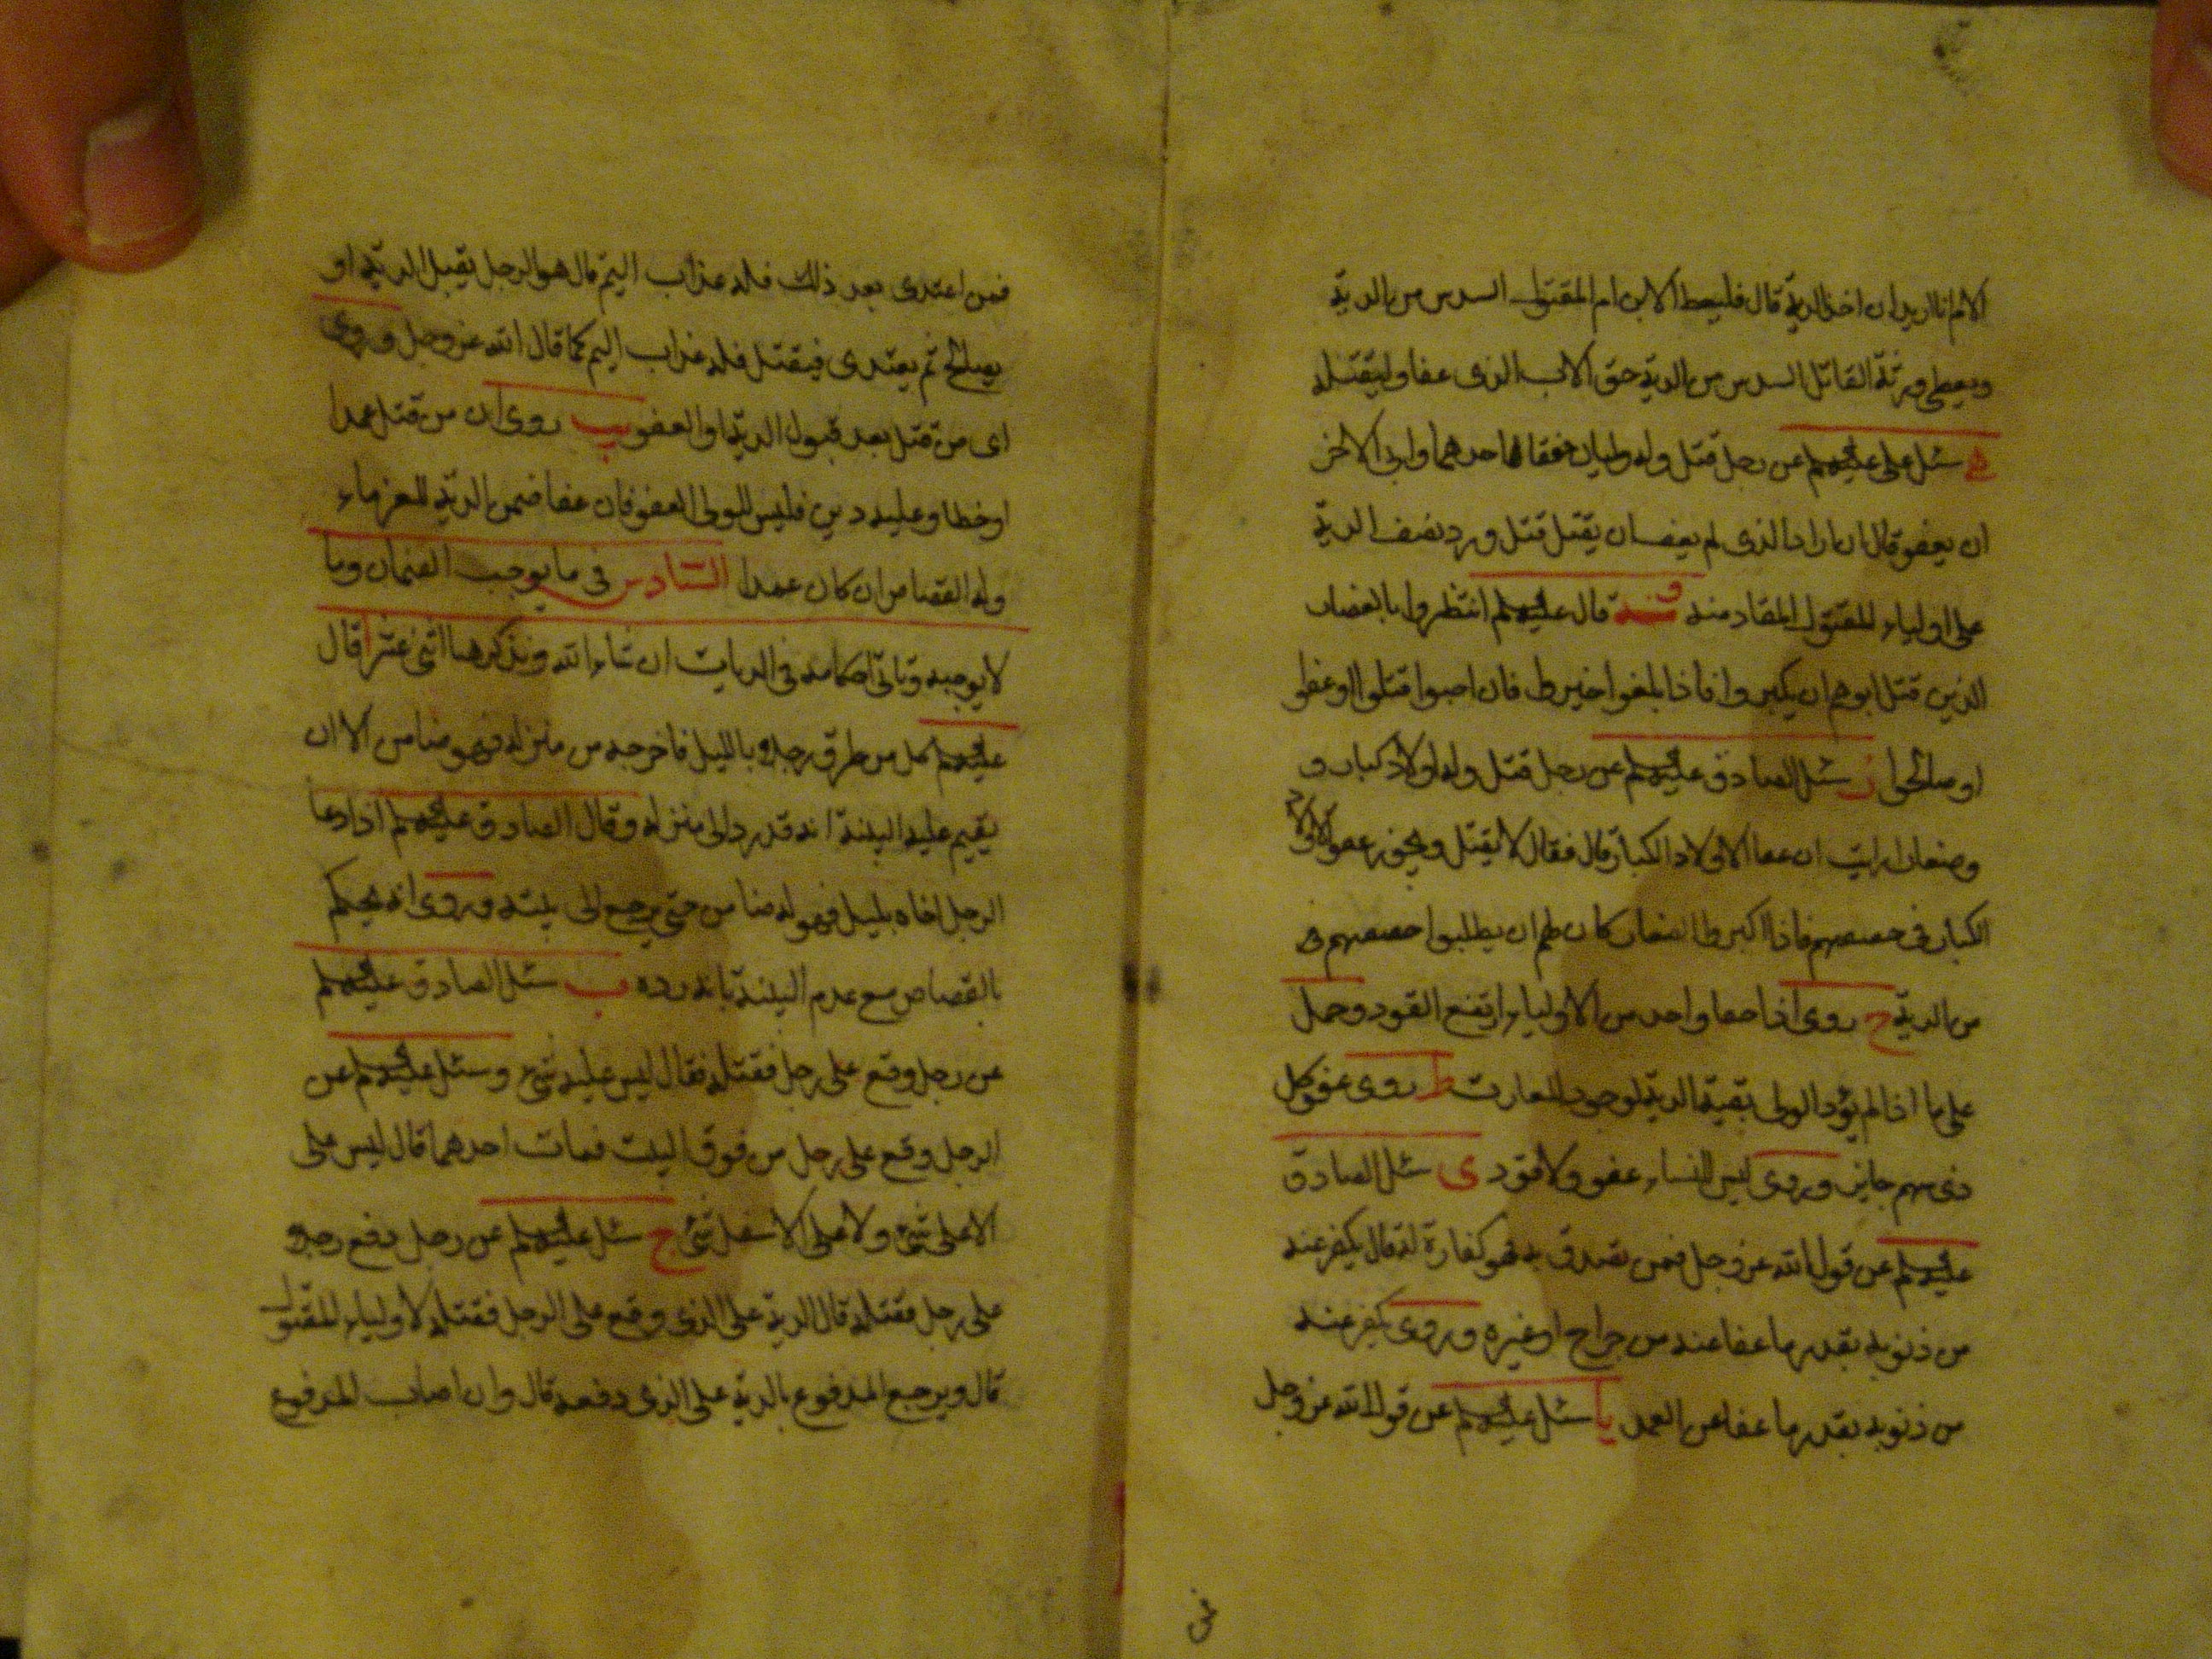 الام انا اريد ان اخذ الدية قال فليعط الابن ام المقتول السدس من الدية
ويعطى ورثة القاتل السدس من الدية حق الاب الذى عفا وليقتله
ه سئل على عليهم عن رجل قتل وله وليان فعفا احدهما وابى الاخر
ان يعفو قال ان اراد الذى لم يعف ان يقتل قتل ورد نصف الدية
على اولياء المقتول المقاد منه و قال عليهم انتظروا بالصغار
الذين قتل ابوهم ان يكبروا فاذا بلغوا خيروا فان احبوا قتلوا او عفوا
او صالحوا ز سئل الصادق عليهم عن رجل قتل وله اولاد كبار و
وصغار ارايت ان عفا الاولاد الكبار قال فقال لا يقتل ويجوز عفو الاولاد
الكبار فى حصصهم فاذا اكبروا الصغار كان لهم ان يطلبوا حصصهم
من الدية ح روى اذا عفا واحد من الاولياء ارتفع القود وحمل
على ما اذا لم يؤد الولى بقية الدية لوجود المعارت ط روى عفو كل
ذى سهم جايز وروى ليس للنساء عفو ولا قود ى سئل الصادق
عليهم عن قول الله عز وجل فمن تصدق به فهو كفارة له قال يكفر عنه
من ذنوبه بقدر ما عفا عنه من جراح او غيره وروى يكفر عنه
من ذنوبه بقدر ما عفا من العمد يا سئل عليهم عن قول الله عز وجل
فمن
فمن اعتدى بعد ذلك فله عذاب اليم قال هو الرجل يقبل الدية او
يصالح ثم يعتدى فيقتل فله عذاب اليم كما قال الله عز وجل وروى
اى من قتل بعد قبول الدية او العفو يب روى ان من قتل عمدا
او خطا وعليه دين فليس للولى العفو فان عفا ضمن الدية للغرماء
وله القصاص ان كان عمدا السادس فى ما يوجب الضمان وما
لا يوجبه وتاتى احكامه فى الديات ان شاء الله ونذكر هنا اثنى عشر ا قال
عليهم كل من طرق رجلا بالليل فاخرجه من منزله فهو ضامن الا ان
يقيم عليه البينة انه قد رد الى منزله وقال الصادق عليهم اذا دعا
الرجل اخاه بليل فهو له ضامن حتى يرجع الى بيته وروى انه يحكم
بالقصاص مع عدم البينة بانه رده ب سئل الصادق عليهم
عن رجل وقع على رجل فقتله فقال ليس عليه شئ وسئل عليهم عن
الرجل وقع على رجل من فوق البيت فمات احدهما قال ليس على
الاعلى شئ ولا على الاسفل شئ ج سئل عليهم عن رجل دفع رجلا
على رجل فقتله قال الدية على الذى وقع على الرجل فقتله لاولياء المقتول
قال ويرجع المدفوع بالدية على الذى دفعه قال وان اصاب المدفوع